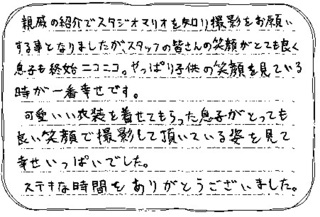 親戚の紹介でスタジオマリオを知り撮影をお願い
する事となりましたがスタッフの皆さんの笑顔がとても良く
息子も終始ニコニコ。やっぱり子供の笑顔を見ている
時が一番幸せです。
可愛いい衣装を着せてもらった息子がとっても
良い笑顔で撮影して頂いている姿を見て
幸せいっぱいでした。
ステキな時間をありがとうございました。